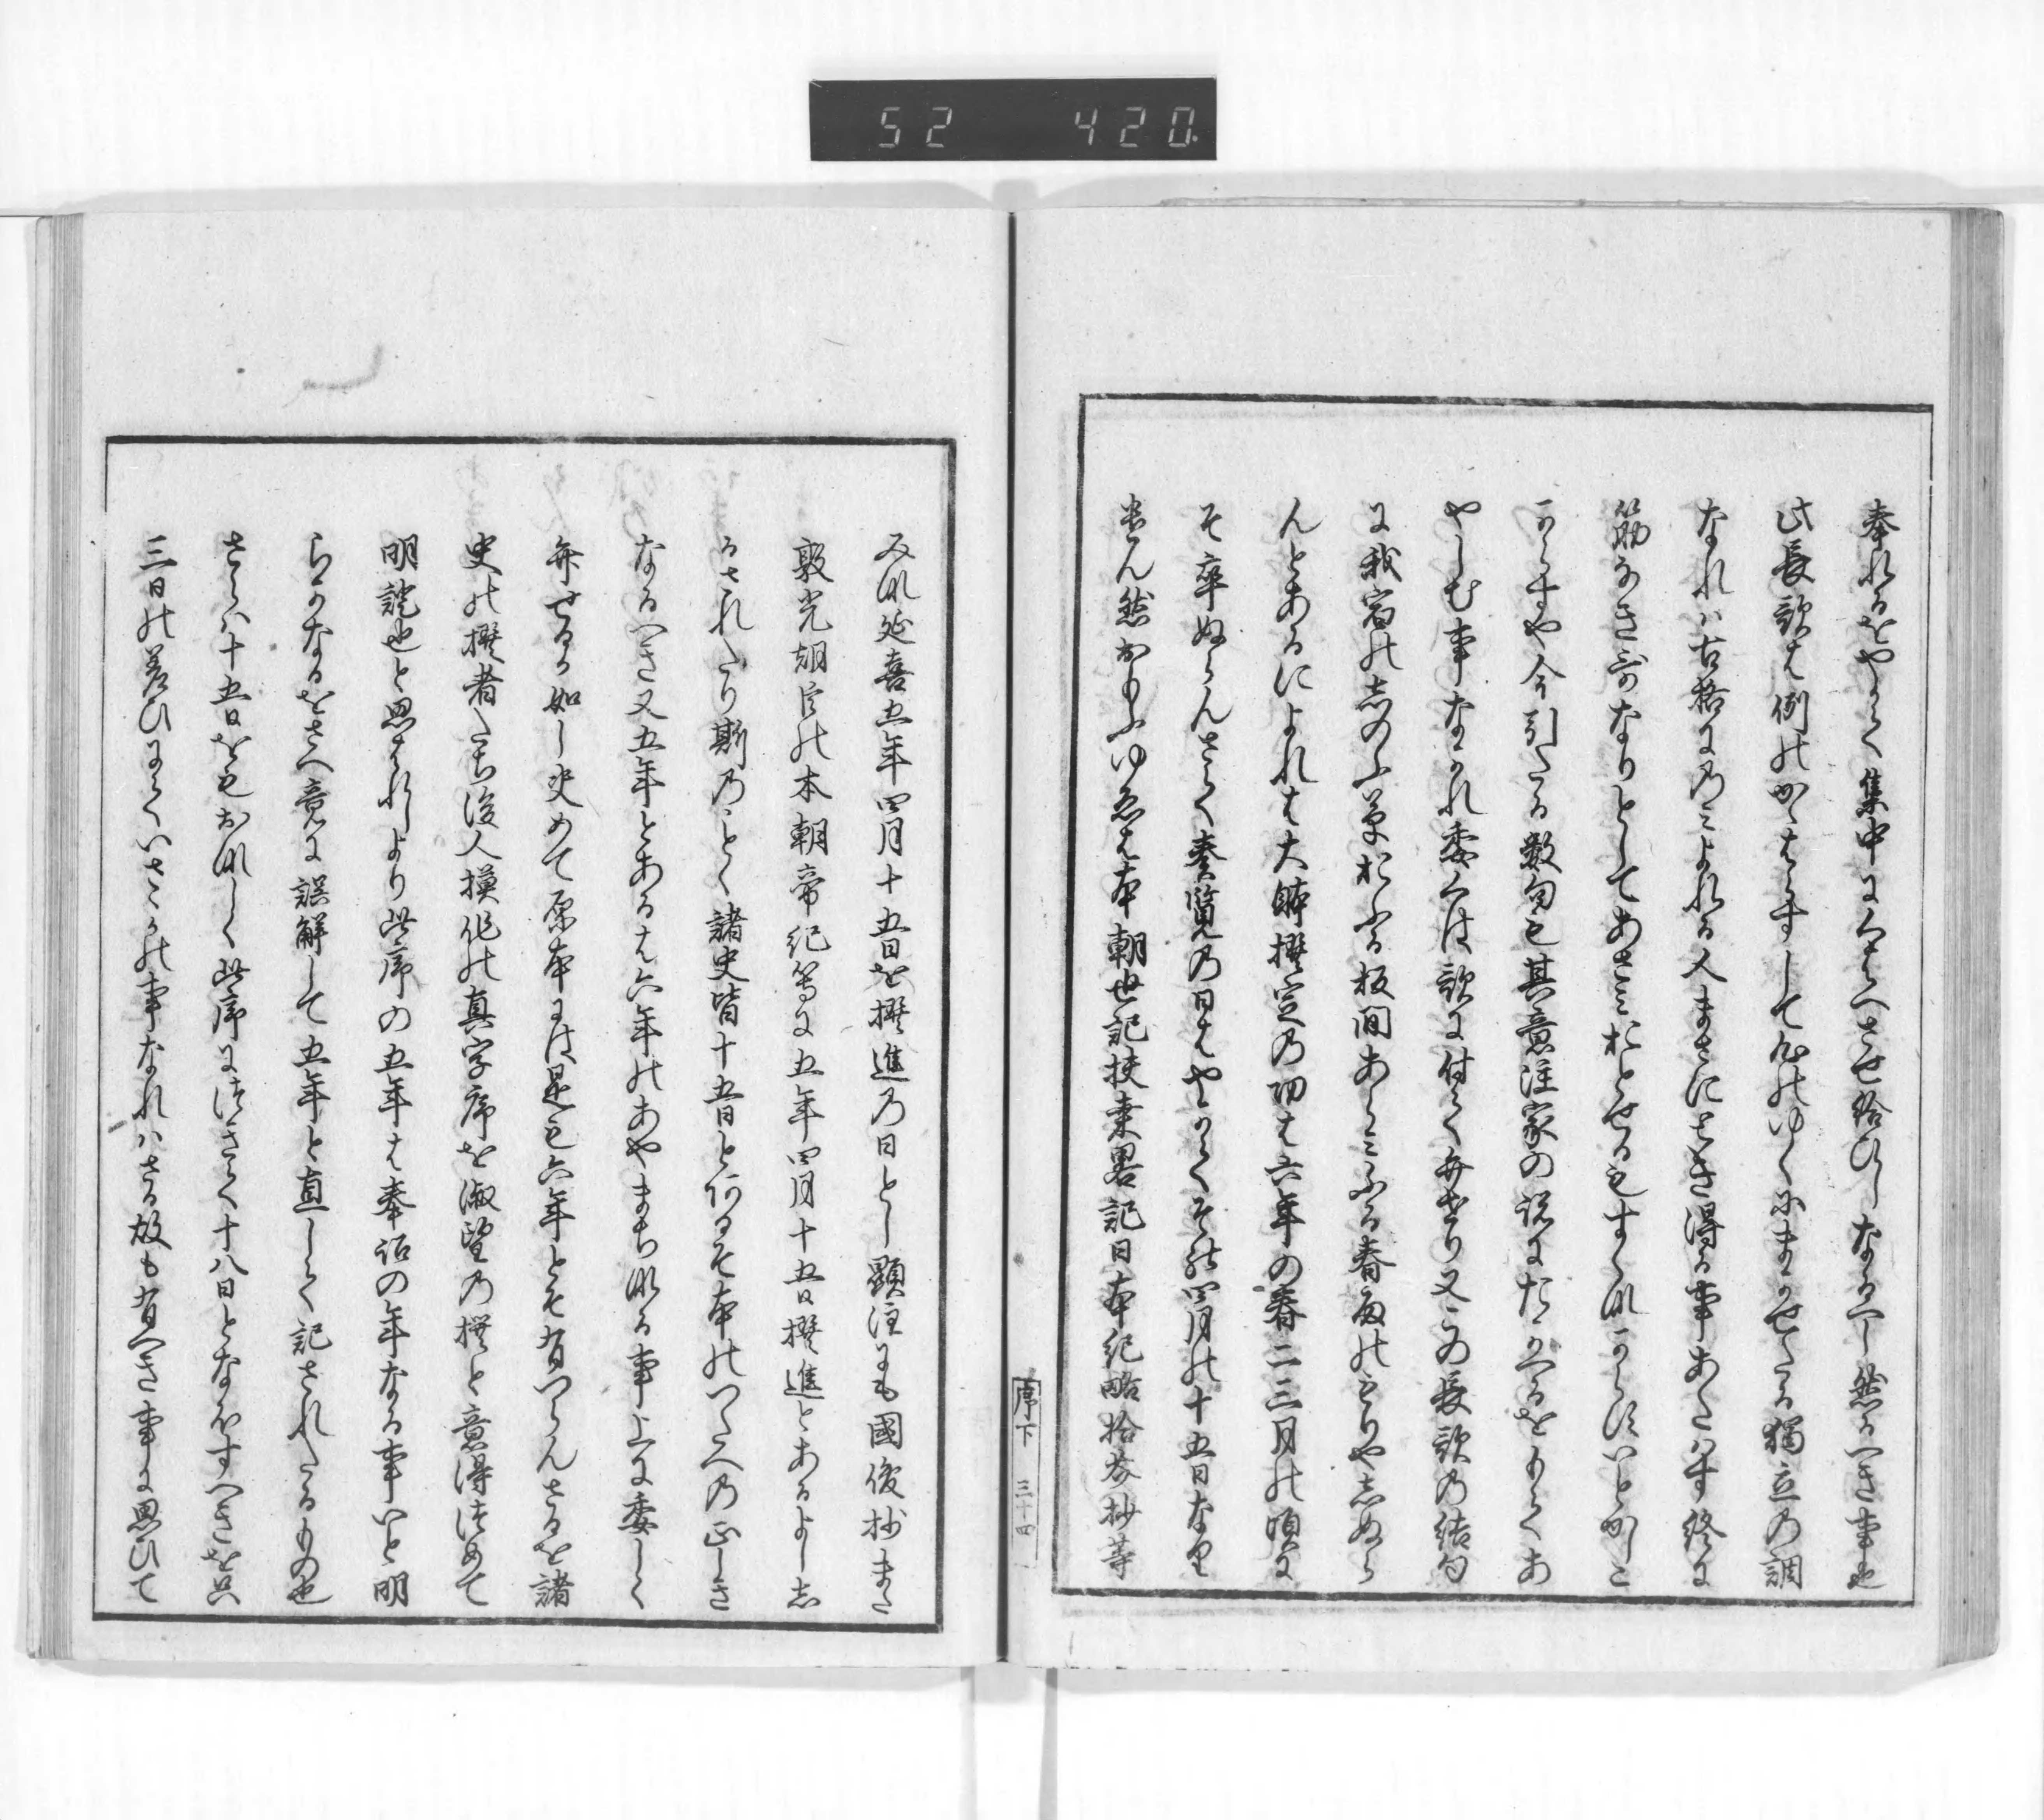 52 420
奉れるをやかて集中にくはへさせ給ひしなるへし然るへき事也
此長歌は例のかゝはらすして心のゆくにまかせたる獨立の調
なれは古格にのみよれる人まさにさき得る事あたはす終に
筋なき哥なりとしてあさみおとせるもすくなからすいとかしこ
からすや今引たる数句も其意注家の説にたかへるをもてあ
やしむ事なかれ委くは歌に付て弁せり又この長歌の結句
に我宿のしのふ草おふる板間あらみふる春雨のもりやしぬら
んとあるによれは大躰撰定の功は六年の春二三月の頃に
そ卒ぬらんさて奏覧の日はやかてその四月の十五日なり
けん然おもふゆゑは本朝世記扶桑畧記日本紀略拾芥抄等
序下 三十四
みな延喜五年四月十五日を撰進の日とし顕注にも國俊抄また
敦光朝臣の本朝帝紀等に五年四月十五日撰進とあるよしし
るされたり斯のことく諸史皆十五日とあるそ本のつたへの正しき
なるへき又五年とあるは六年のあやまちなる事上に委しく
弁せるか如し史めて原本には是も六年とそ有つらんさるを諸
史の撰者たち後人摸作の真字序を淑望の撰と意得つめて
明説也と思はれしより此序の五年は奉詔の年なる事いと明
らかなるをさへ意に誤解して五年と直しく記されたるもの也
さらは十五日をもおなしく此序につきて十八日となほすへきを只
三日の差ひにていさゝかの事なれはさる故も有へき事に思ひて